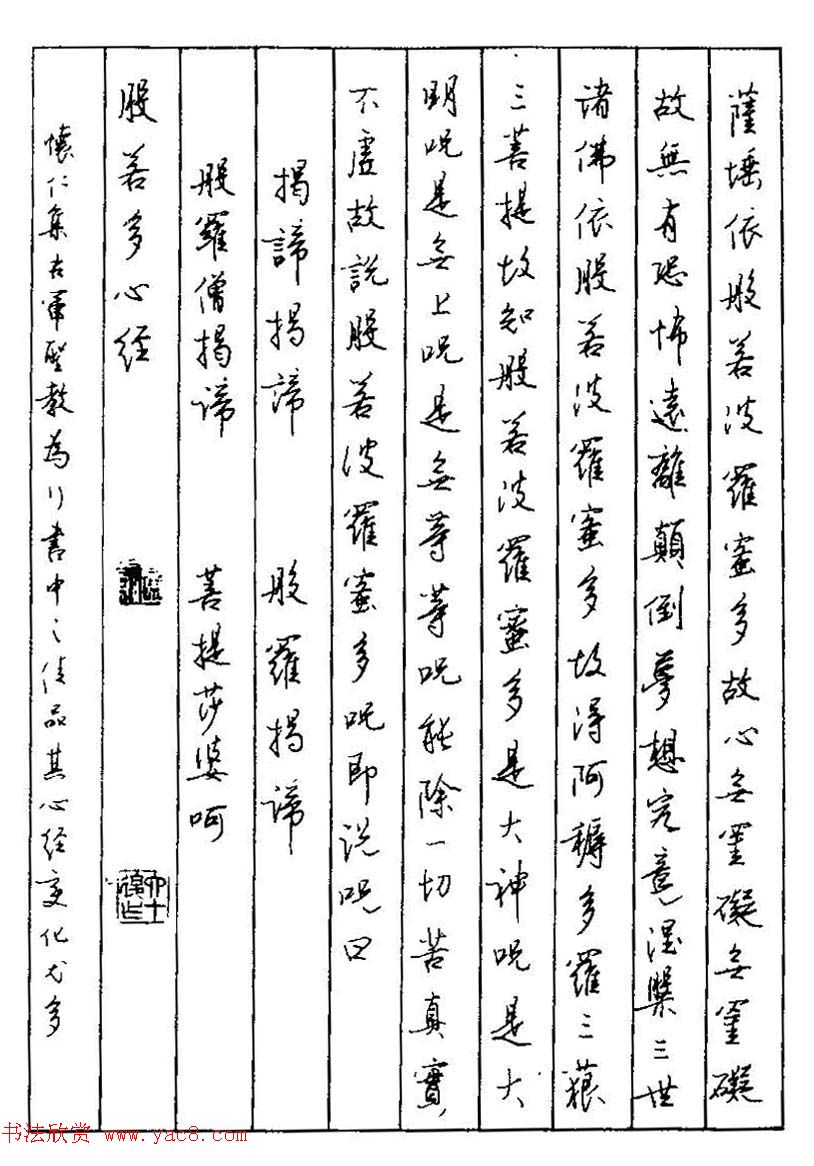 薩埵依般若波羅蜜多故心無罣礙無罣礙
故無有恐怖遠離顛倒夢想究竟涅槃三世
諸佛依般若波羅蜜多故得阿耨多羅三藐
三菩提故知般若波羅蜜多是大神咒是大
明咒是無上咒是無等等咒能除一切苦真實
不虛故說般若波羅蜜多咒即說咒曰
揭諦揭諦 般羅揭諦
般羅僧揭諦 菩提莎婆呵
般若多心經
懷仁集右軍聖教為行書中之佳品其心經變化尤多
书法欣赏 www.yac8.com